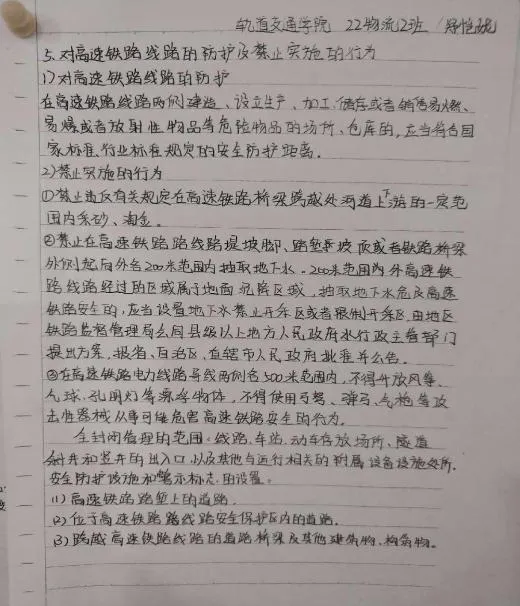 轨道交通学院 22物流2班
5. 对高速铁路线路的防护及禁止实施的行为
1) 对高速铁路线路的防护
在高速铁路线路两侧建造、设立生产、加工、储存或者销售易燃、
易爆或者放射性物品等危险物品的场所、仓库的,应当符合国
家标准、行业标准规定的安全防护距离.
2) 禁止实施的行为
①禁止违反有关规定在高速铁路桥梁跨越处河道上下游的一定范
围内采砂、淘金。
②禁止在高速铁路路线路堤坡脚、路堑坡顶或者铁路桥梁
外侧起向外各200米范围内抽取地下水。200米范围内外高速铁
路线路经过的区域属于地面沉降区域,抽取地下水危及高速
铁路安全的,应当设置地下水禁止开采区或者限制开采区,由地区
铁路监督管理局会同县级以上地方人民政府水行政主管部门
提出方案,报省、自治区、直辖市人民政府批准并公告。
③在高速铁路电力线路导线两侧各500米范围内,不得升放风筝、
气球、孔明灯等漂浮物体,不得使用弓弩、弹弓、气枪等攻
击性器械从事可能危害高速铁路安全的行为.
全封闭管理的范围:线路、车站、动车存放场所、隧道
斜井和竖井的出入口,以及其他与运行相关的附属设备设施处所.
安全防护设施和警示标志的设置:
(1) 高速铁路路堑上的道路.
(2) 位于高速铁路路线路安全保护区内的道路.
(3) 跨越高速铁路线路的道路桥梁及其他建筑物、构筑物.